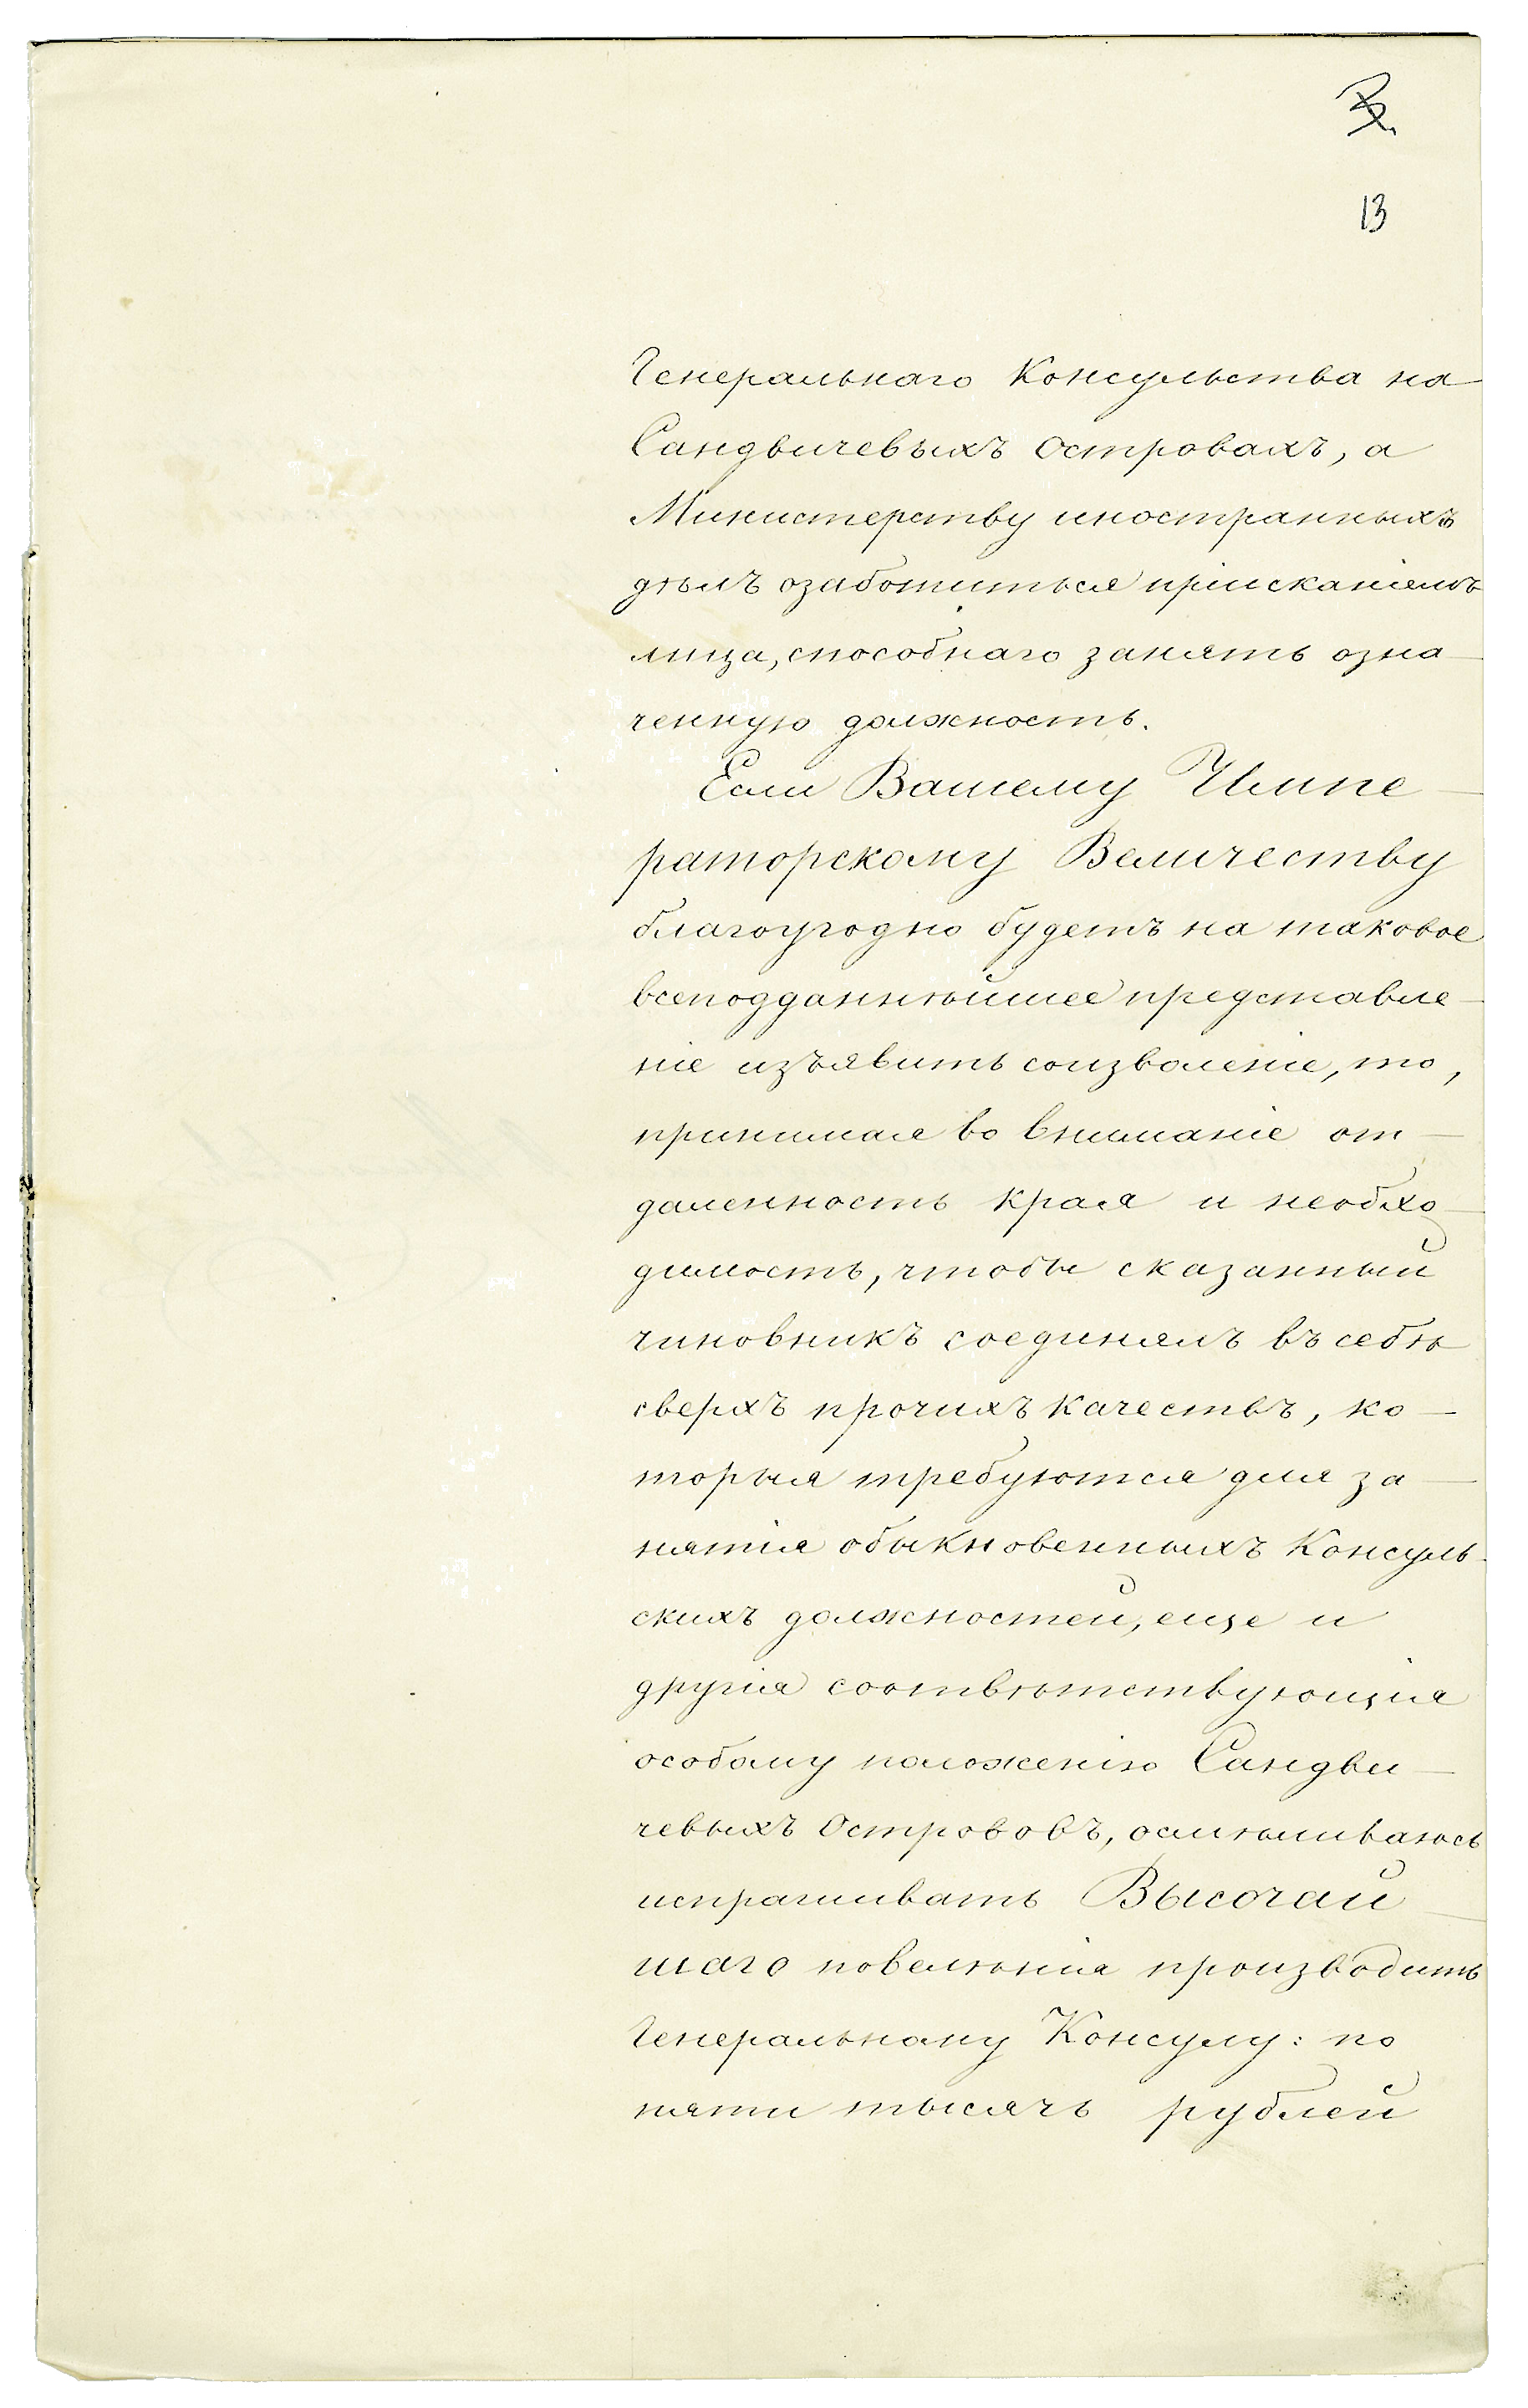 13
Генеральнаго Консульства на
Сандвичевыхъ Островахъ, а
Министерству иностранныхъ
дѣлъ озаботиться пріисканіемъ
лица, способнаго занять озна-
ченную должность.
Если Вашему Импе-
раторскому Величеству
благоугодно будетъ на таковое
всеподданнѣйшее представле-
ніе изъявить соизволеніе, то,
принимая во вниманіе от-
даленность края и необхо-
димость, чтобы сказанный
чиновникъ соединялъ въ себѣ
сверхъ прочихъ качествъ, ко-
торыя требуются для за-
нятія обыкновенныхъ Консуль-
скихъ должностей, еще и
другія соотвѣтствующія
особому положенію Сандви-
чевыхъ Острововъ, осмѣливаюсь
испрашивать Высочай-
шаго повелѣнія производить
Генеральному Консулу: по
пяти тысячъ рублей